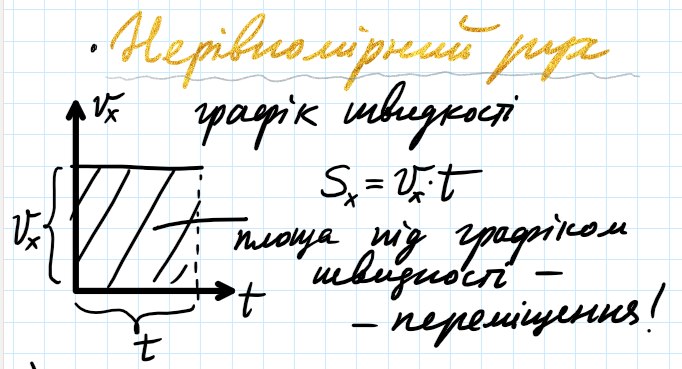 • Нерівномірний рух
графік швидкості
vₓ
vₓ
t
t
Sₓ = vₓ · t
площа під графіком
швидкості –
– переміщення!